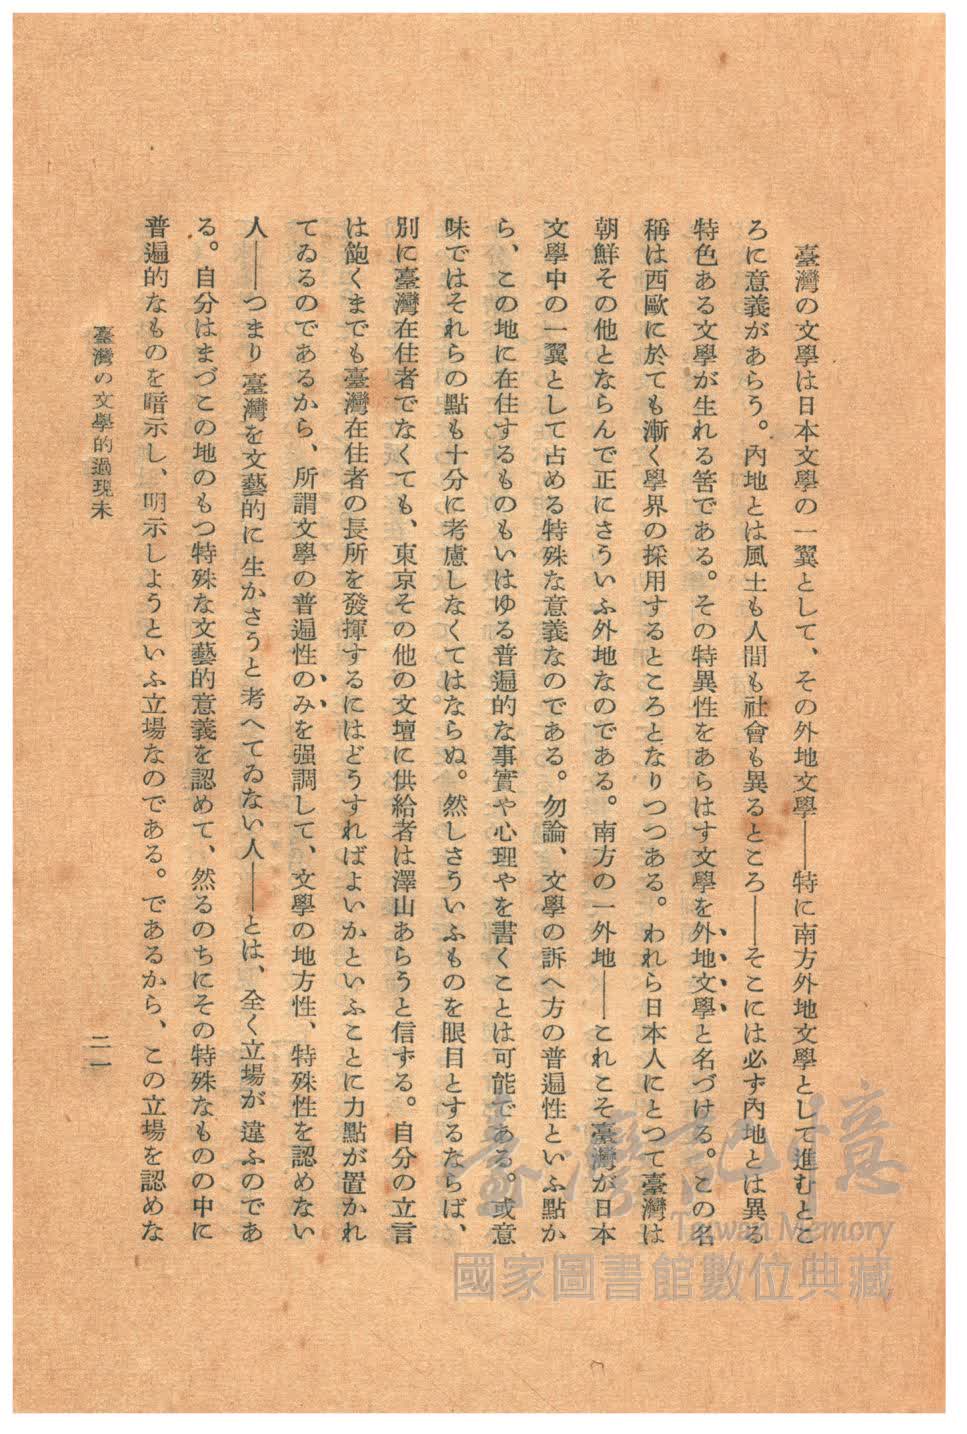 臺灣の文學は日本文學の一翼として、その外地文學――特に南方外地文學として進むとこ
ろに意義があらう。內地とは風土も人間も社會も異るところ――そこには必ず內地とは異る
特色ある文學が生れる筈である。その特異性をあらはす文學を外地文學と名づける。この名
稱は西歐に於ても漸く學界の採用するところとなりつつある。われら日本人にとつて臺灣は
朝鮮その他とならんで正にさういふ外地なのである。南方の一外地――これこそ臺灣が日本
文學中の一翼として占める特殊な意義なのである。勿論、文學の訴へ方の普遍性といふ點か
ら、この地に在住するものもいはゆる普遍的な事實や心理やを書くことは可能である。或意
味ではそれらの點も十分に考慮しなくてはならぬ。然しさういふものを眼目とするならば、
別に臺灣在住者でなくても、東京その他の文壇に供給者は澤山あらうと信ずる。自分の立言
は飽くまでも臺灣在住者の長所を發揮するにはどうすればよいかといふことに力點が置かれ
てゐるのであるから、所謂文學の普遍性のみを强調して、文學の地方性、特殊性を認めない
人――つまり臺灣を文藝的に生かさうと考へてゐない人――とは、全く立場が違ふのであ
る。自分はまづこの地のもつ特殊な文藝的意義を認めて、然るのちにその特殊なものの中に
普遍的なものを暗示し、明示しようといふ立場なのである。であるから、この立場を認めな
臺灣の文學的過現未
二一
臺灣記憶
Taiwan Memory
國家圖書館數位典藏